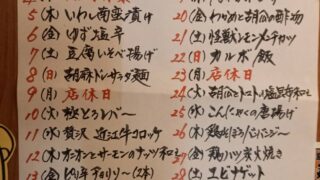 5 (木) いわし南蛮漬け
6 (金) ゆず塩辛
7 (土) 豆腐いそべ揚げ
8 (日) 胡麻ドレサラダ麺
9 (月) 店休日
10 (火)
11 (水) 贅沢 近江牛コロッケ
12 (木) オニオンとサーモンのナッツ和え
13 (金) ピリ辛チョリソー(2本)
20 (金) わかめと胡瓜の酢物
21 (土) 怪獣レモンメンチカツ
22 (日) カルボ飯
23 (月) 店休日
24 (火) 胡瓜とトマトの塩昆布和え
25 (水) こんにゃくの唐揚げ
26 (木)
27 (金) 鶏ハツ炭火焼き
28 (土) エビナゲット